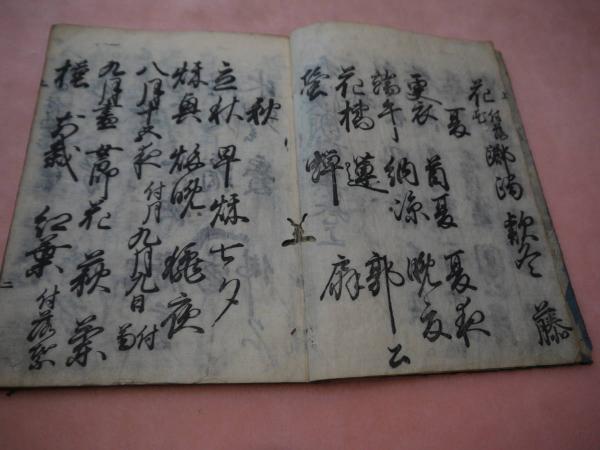 花 付落花 躑躅 款冬 藤
夏
更衣 首夏 夏夜
端午 納涼 晩夏
花橘 蓮 郭公
蛍 蝉 扇
秋
立秋 早秋 七夕
秋興 秋晩 秋夜
八月十五夜 付月 九月九日 付菊
九月盡 女郎花 萩 蘭
槿 前栽 紅葉 付落葉
二